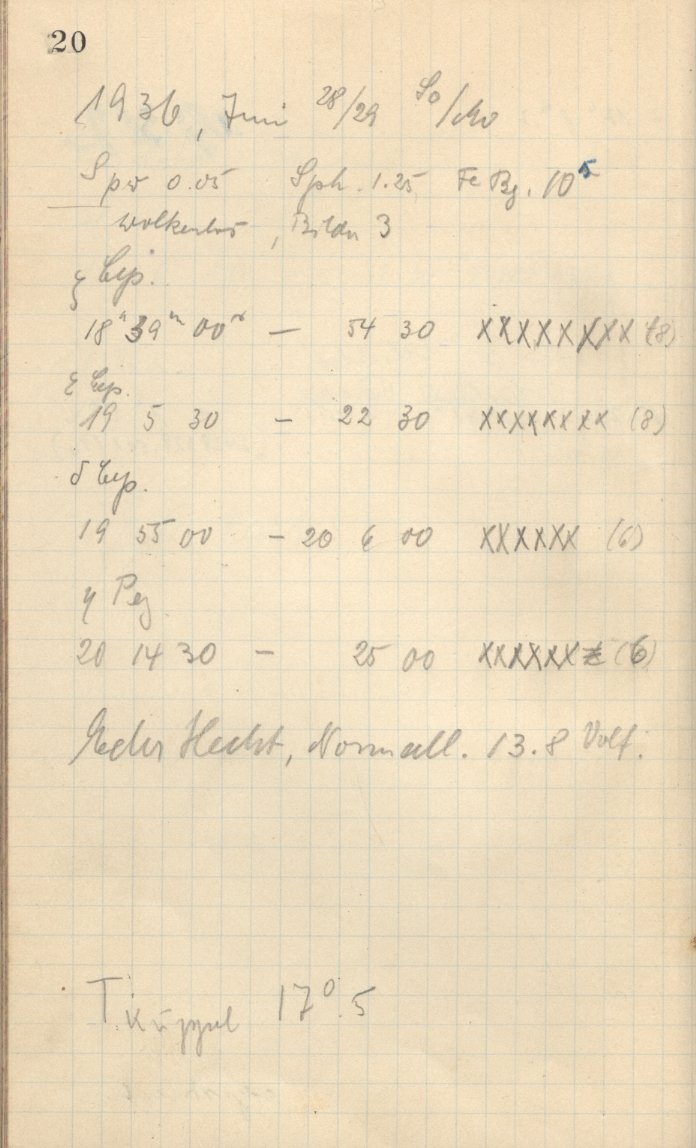 20
1936, Juni 28/29 So/Mo
Spw 0.05 Sph. 1.25 Fe Bg. 10⁵
wolkenlos, Bilder 3
Cep.
18ʰ 39ᵐ 00ˢ — 54 30 XXXXXXXX (8)
ε Cep.
19 5 30 — 22 30 XXXXXXXX (8)
δ Cep.
19 55 00 — 20 6 00 XXXXXX (6)
η Peg
20 14 30 — 25 00 XXXXXX (6)
Eder Hecht, Normall. 13.8 Volt.
T. Kuppel 17°.5